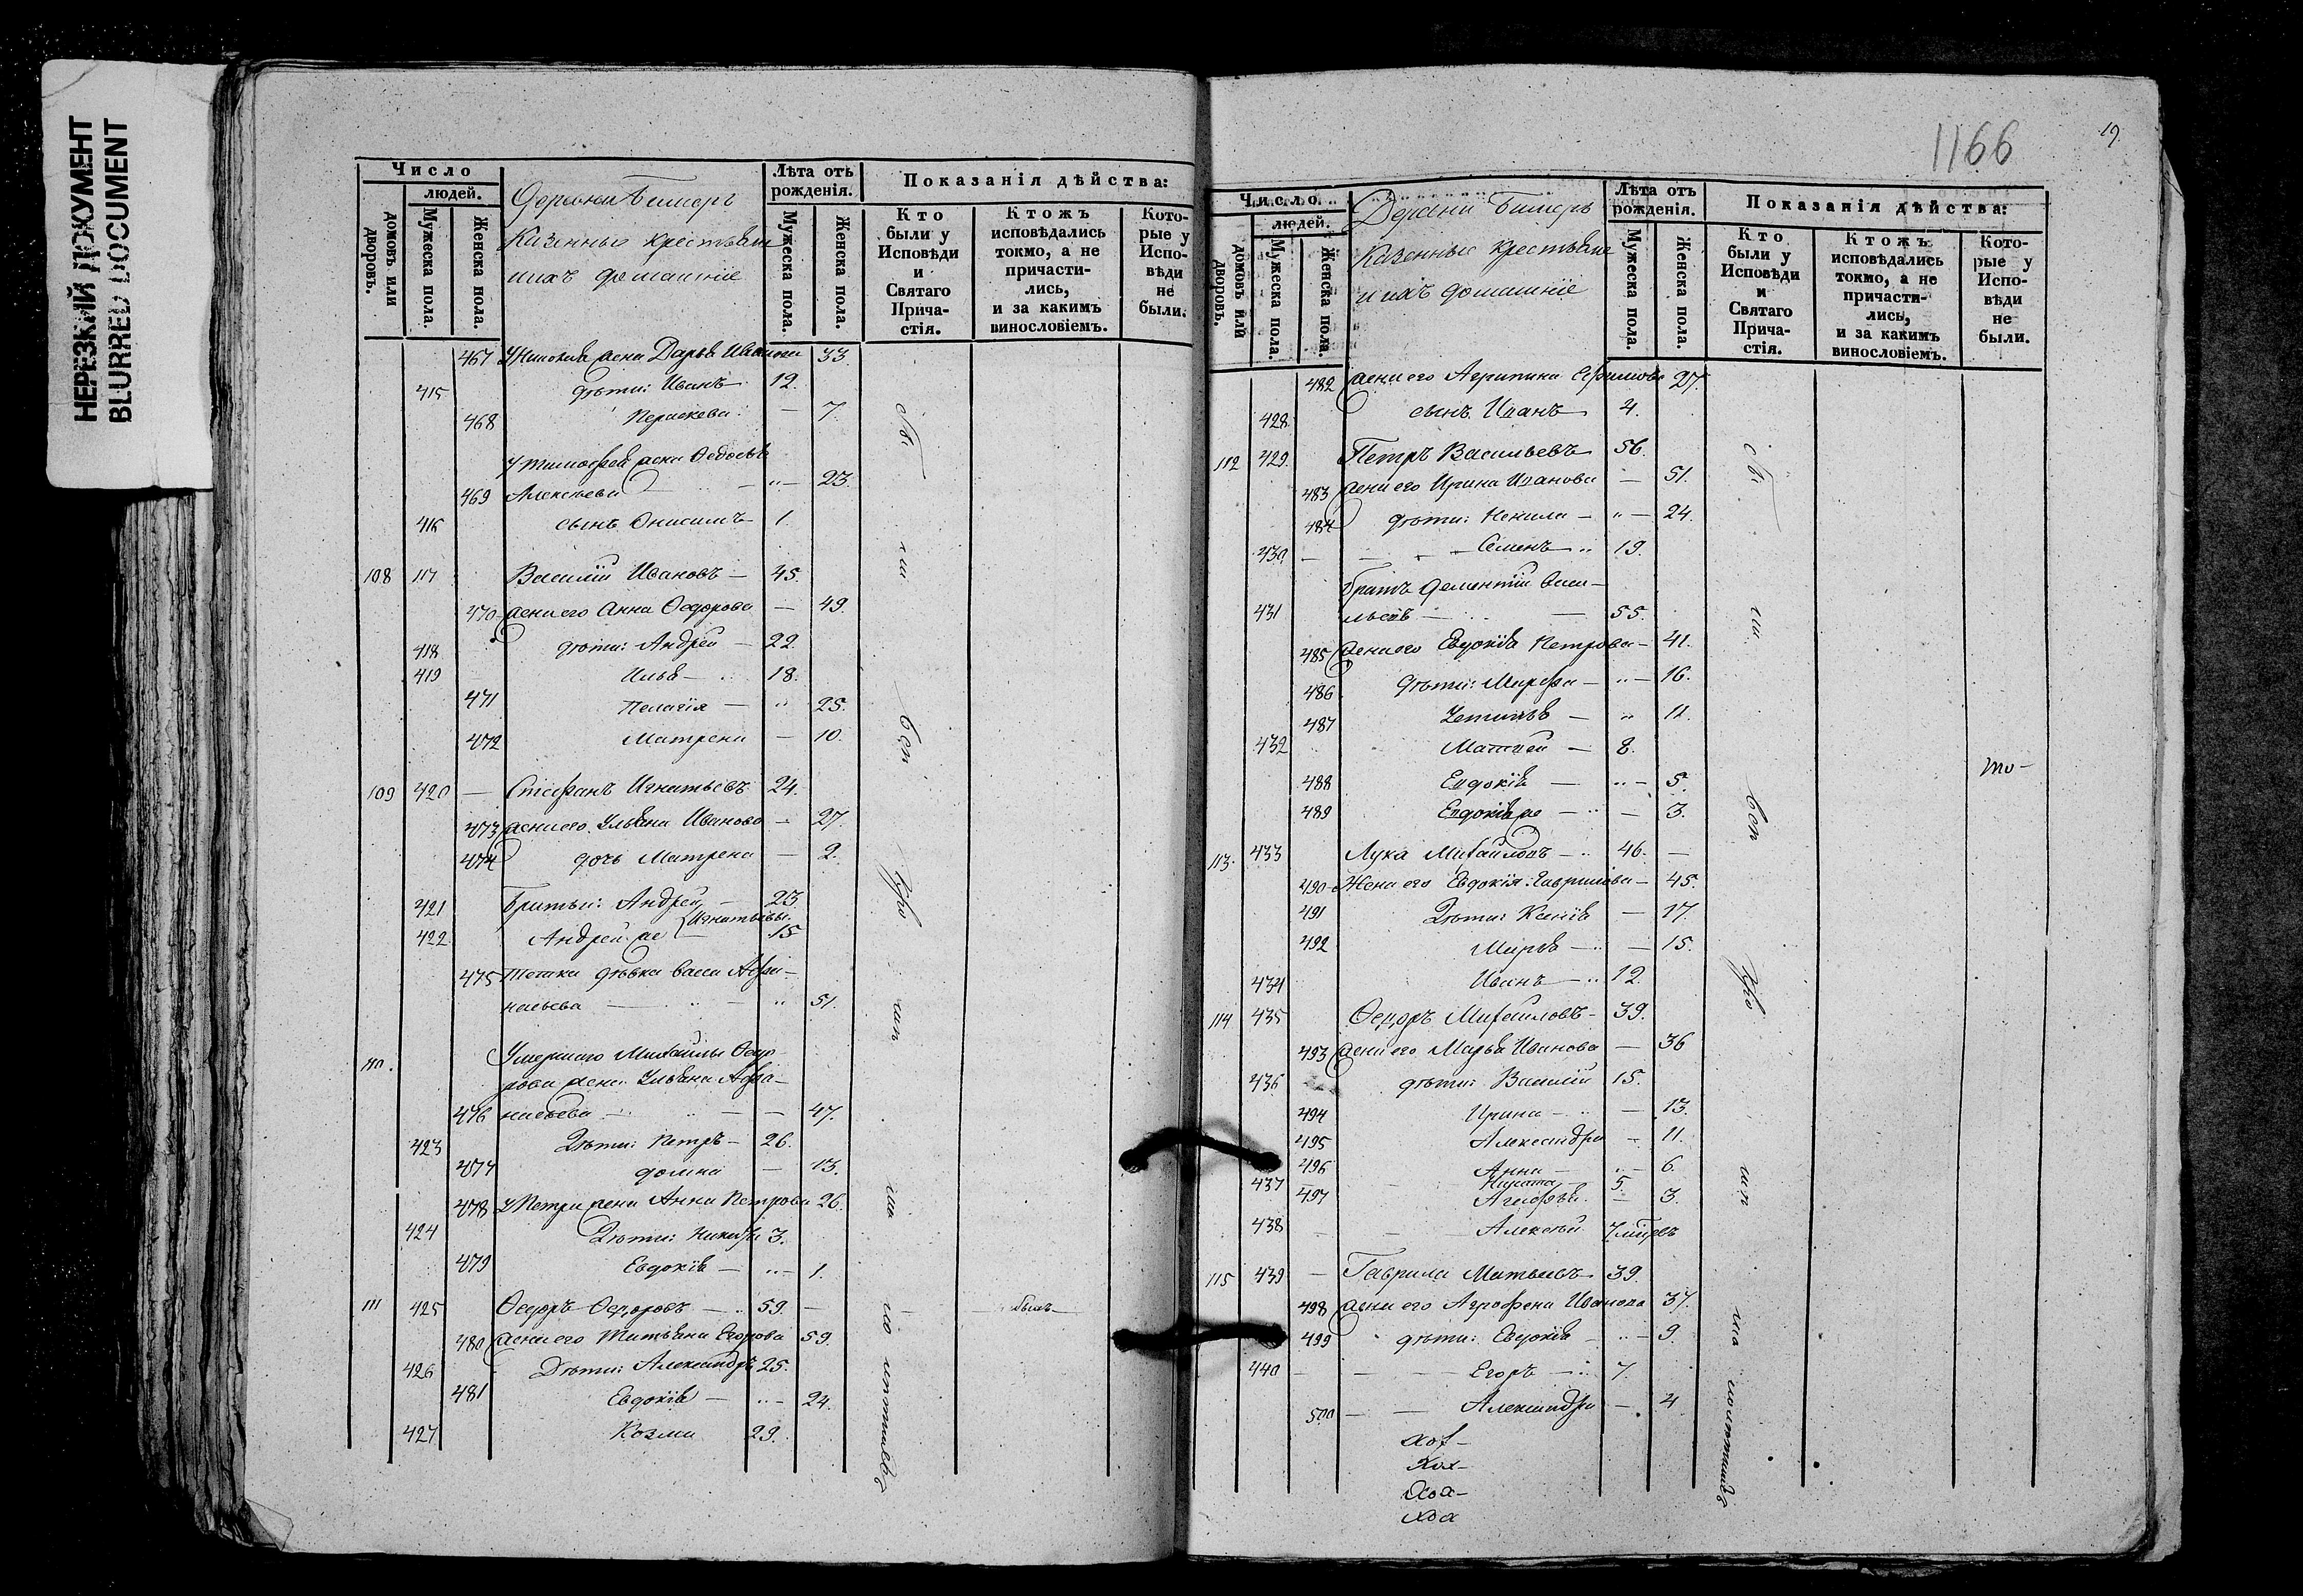 НЕРЕЗКИЙ ДОКУМЕНТ
BLURRED DOCUMENT
Число
людей.
домовъ или дворовъ.
Мужеска пола.
Женска пола.
Деревни Бимеръ
Казенные крестьяне
и ихъ домашніе
Лѣта отъ рожденія.
Мужеска пола.
Женска пола.
Показанія дѣйства:
Кто были у Исповѣди и Святаго Прича-стія.
Ктожъ исповѣдались токмо, а не причасти-лись, и за какимъ винословіемъ.
Кото-рые у Испо-вѣди не были.
467 жена Дарья Иванова 33.
415 дѣти: Иванъ 12.
468 Параскева — 7.
У Тимофея жена Федосья
469 Алексѣева — „ — 23.
416 сынъ Онисимъ 1.
108 417 Василій Ивановъ — 45.
470 жена его Анна Ѳедорова — 49.
418 дѣти: Андрей — 22.
419 Илья — 18.
471 Пелагія — „ 25.
472 Матрена — 10.
109 420 — Стефанъ Игнатьевъ 24.
473 жена его Ульяна Иванова — 27.
474 дочь Матрена — 2.
421 Братья: Андрей — 23.
Игнатьевы.
422 Андрей же — 15
475 Тетка дѣвка Васса Афа-
насьева — „ — „ 51.
110. Умершаго Михайлы Ѳедо-
рова жена Ульяна Афа-
476 насьева — „ — — 47.
423 Дѣти: Петръ — 26.
477 Домна — 13.
478 У Петра жена Анна Петрова 26.
424 Дѣти: Никита 3.
479 Евдокія — „ — 1.
111 425 Ѳедоръ Ѳедоровъ — 59. —
480 жена его Татьяна Егорова 59.
426 Дѣти: Александръ 25.
481 Евдокія — „ — 24.
427 Козма 29.
1166
19.
Число
людей.
домовъ или дворовъ.
Мужеска пола.
Женска пола.
Деревни Бимеръ
Казенные крестьяне
и ихъ домашніе
Лѣта отъ рожденія.
Мужеска пола.
Женска пола.
Показанія дѣйства:
Кто были у Исповѣди и Святаго Прича-стія.
Ктожъ исповѣдались токмо, а не причасти-лись, и за какимъ винословіемъ.
Кото-рые у Испо-вѣди не были.
482 жена его Агрипина Ефимова 27.
428 сынъ Иванъ 4.
112 429. Петръ Васильевъ 56.
483 жена его Ирина Иванова — 51.
484 дѣти: Ненила — „ — 24.
430 — Семенъ „ 19.
братъ Дементій Васи-
431 льевъ — — 55.
485 жена его Евдокія Петрова — 41.
486 Дѣти: Марфа — „ — 16.
487 Устинья — „ 11.
432 Матвей — 8.
488 Евдокія — „ — 5.
489 Евдокія же — „ — 3.
113. 433 Лука Михайловъ — 46. —
490 Жена его Евдокія Гаврилова — 45.
491 Дѣти: Ксенія — 17.
492 Марья — „ — 15.
434 Иванъ — „ 12.
114 435 Ѳедоръ Михайловъ — 39.
493 жена его Марья Иванова — 36
436 дѣти: Василій 15.
494 Ирина — „ — 13.
495 Александра — 11.
496 Анна — „ — 6.
437 Никита 5.
497 — 3.
438 Алексѣй
115 439 — Гаврила Матвеевъ 39.
498 жена его Аграфена Иванова 37.
499 дѣти: Евдокія — „ — 9.
440 — — — Егоръ — 7.
500 — — Александра — 4